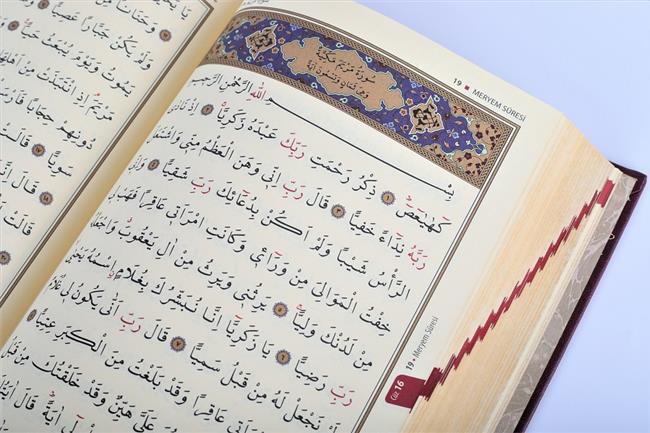 يَا
وَحَنَانًا مِنْ
وَلَمْ يَكُنْ جَبَّارًا عَصِيًّا
يَمُوتُ وَيَوْمَ يُبْعَثُ حَيًّا
مَرْيَمَ اِذِ انْتَبَذَتْ مِنْ اَهْلِهَا
دُونِهِمْ حِجَابًا
سَوِيًّا ﴿١٧﴾ قَالَتْ
قَالَ
قَالَتْ
19 • MERYEM SÛRESİ
سُورَةُ مَرْيَمَ مَكِّيَّةٌ
وَهِيَ ثَمَانٍ وَتِسْعُونَ اٰيَةً
بِسْــــمِ اللّٰهِ الرَّحْمٰنِ الرَّحِيمِ
كٓهٰيٰعٓصٓ ﴿١﴾ ذِكْرُ رَحْمَتِ رَبِّكَ عَبْدَهُ زَكَرِيَّا ﴿٢﴾ اِذْ نَادٰى
رَبَّهُ نِدَٓاءً خَفِيًّا ﴿٣﴾ قَالَ رَبِّ اِنِّي وَهَنَ الْعَظْمُ مِنِّي وَاشْتَعَلَ
الرَّأْسُ شَيْبًا وَلَمْ اَكُنْ بِدُعَٓائِكَ رَبِّ شَقِيًّا ﴿٤﴾ وَاِنِّي
خِفْتُ الْمَوَالِيَ مِنْ وَرَٓاءِي وَكَانَتِ امْرَاَتِي عَاقِرًا فَهَبْ لِي
مِنْ لَدُنْكَ وَلِيًّا ﴿٥﴾ يَرِثُنِي وَيَرِثُ مِنْ اٰلِ يَعْقُوبَ وَاجْعَلْهُ
رَبِّ رَضِيًّا ﴿٦﴾ يَا زَكَرِيَّٓا اِنَّا نُبَشِّرُكَ بِغُلَامٍ اسْمُهُ يَحْيٰى
لَمْ نَجْعَلْ لَهُ مِنْ قَبْلُ سَمِيًّا ﴿٧﴾ قَالَ رَبِّ اَنّٰى يَكُونُ لِي غُلَامٌ
امْرَاَتِي عَاقِرًا وَقَدْ بَلَغْتُ مِنَ الْكِبَرِ عِتِيًّا
عَلَيَّ هَيِّنٌ وَقَدْ خَلَقْتُكَ مِنْ قَبْلُ
اٰيَةً قَالَ
Cüz 16
19 • Meryem Sûresi